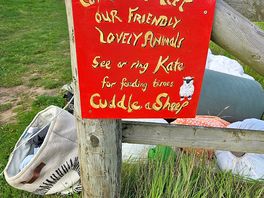 our Friendly
Lovely Animals
See or ring Kate
for feeding times
Cuddle a Sheep